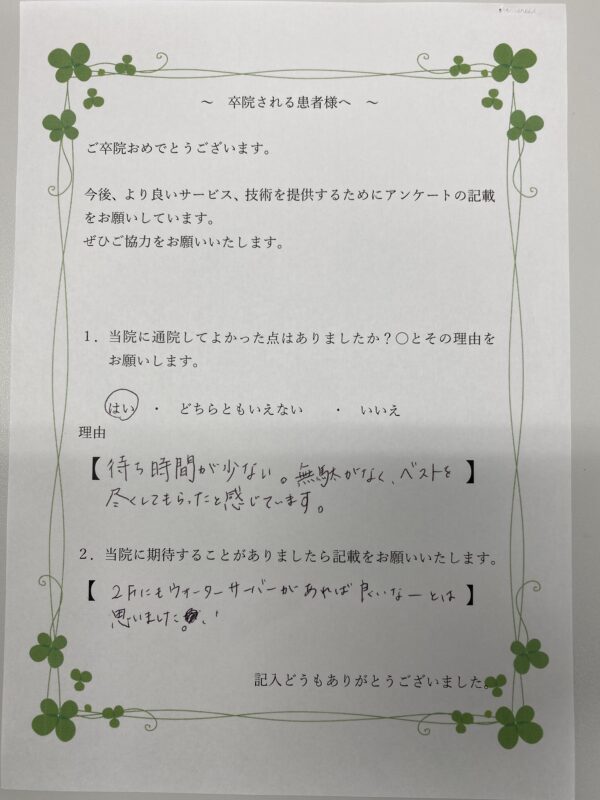 ～　卒院される患者様へ　～
ご卒院おめでとうございます。
今後、より良いサービス、技術を提供するためにアンケートの記載
をお願いしています。
ぜひご協力をお願いいたします。
１．当院に通院してよかった点はありましたか？〇とその理由を
お願いします。
はい　・　どちらともいえない　・　いいえ
理由
【待ち時間が少ない。無駄がなく、ベストを】
尽くしてもらったと感じています。
２．当院に期待することがありましたら記載をお願いいたします。
【2Fにもウォーターサーバーがあれば良いなーとは】
思いました。
記入どうもありがとうございました。